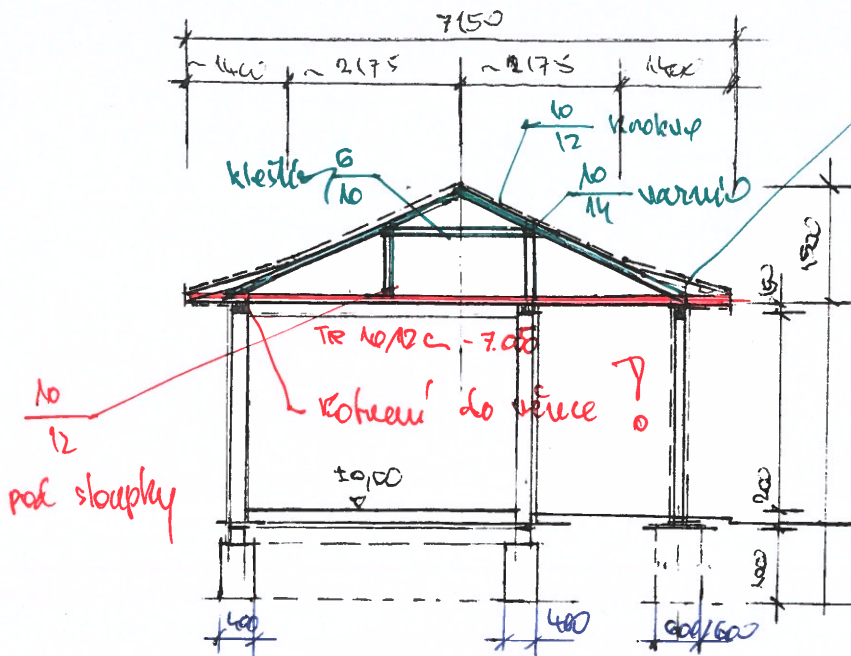 7150
~ 1400 ~ 2175 ~ 2175 1400
10/12 krokve
kleštiny 6/10
10/14
150
TR 10/12 cm - 7.00
kotvení do věnce !
10/12
pod sloupky
±0,00
200
400 400 600/600